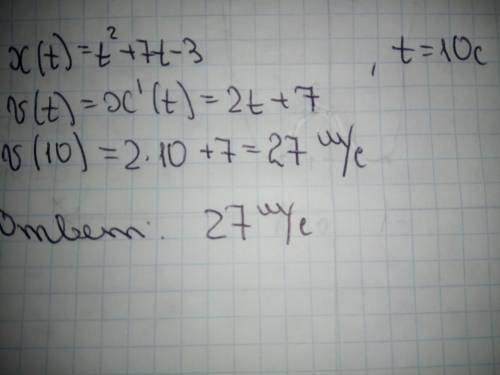 x(t)=t²+7t-3 , t=10c
v(t)=x'(t)=2t+7
v(10)=2·10+7=27 м/с
Ответ: 27 м/с